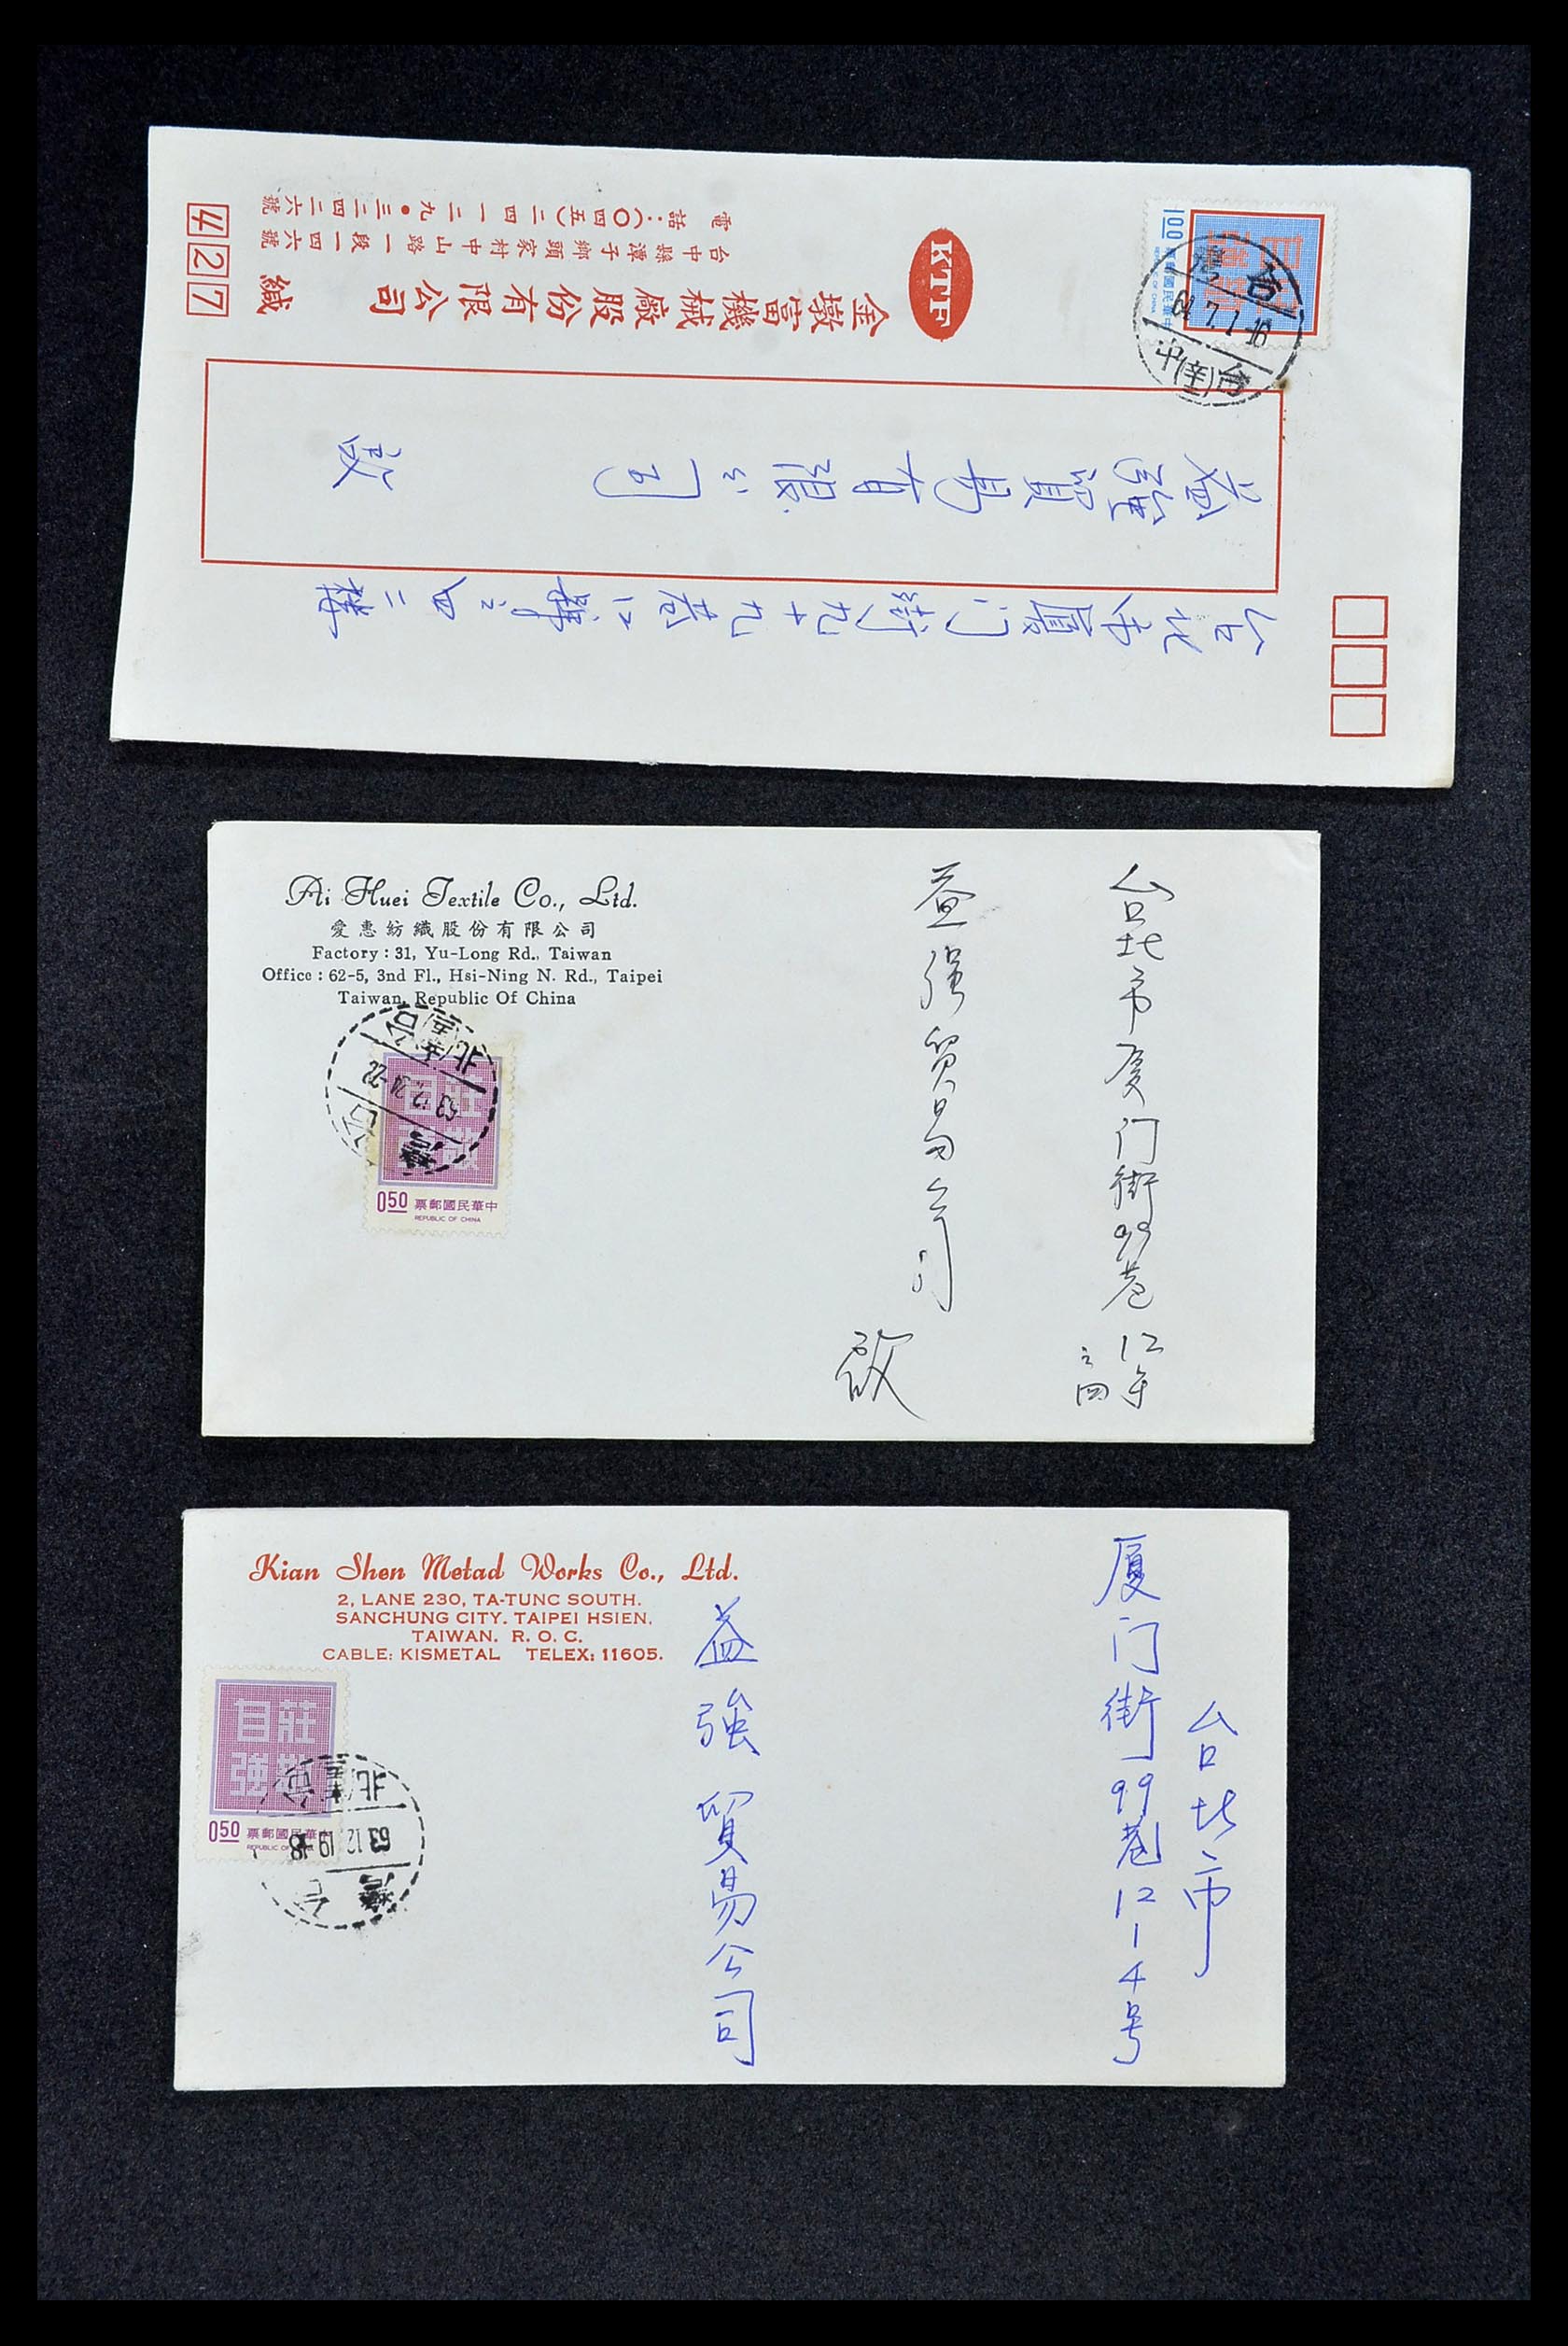 電話：（〇四五）二四一二九•三二四二六號
台中縣潭子鄉頭家村中山路一段一四六號
金墩富機械廠股份有限公司 緘
427
KTF
1.00
中華民國郵票
REPUBLIC OF CHINA
台灣
64.7.1.16
台(辛)中
益強貿易有限公司 啟
台北市厦门街九十九巷12號之四二樓
Ai Huei Textile Co., Ltd.
愛惠紡織股份有限公司
Factory : 31, Yu-Long Rd., Taiwan
Office : 62-5, 3nd Fl., Hsi-Ning N. Rd., Taipei
Taiwan, Republic Of China
莊敬
自強
0.50 中華民國郵票
REPUBLIC OF CHINA
台灣
台北市厦门街99巷12号之四
益強貿易公司
啟
Kian Shen Metad Works Co., Ltd.
2, LANE 230, TA-TUNC SOUTH.
SANCHUNG CITY. TAIPEI HSIEN.
TAIWAN. R. O. C.
CABLE: KISMETAL TELEX: 11605.
莊敬
自強
0.50 中華民國郵票
REPUBLIC OF
63.12.19.18
台灣
台北市
厦门街99巷12-4号
益強貿易公司